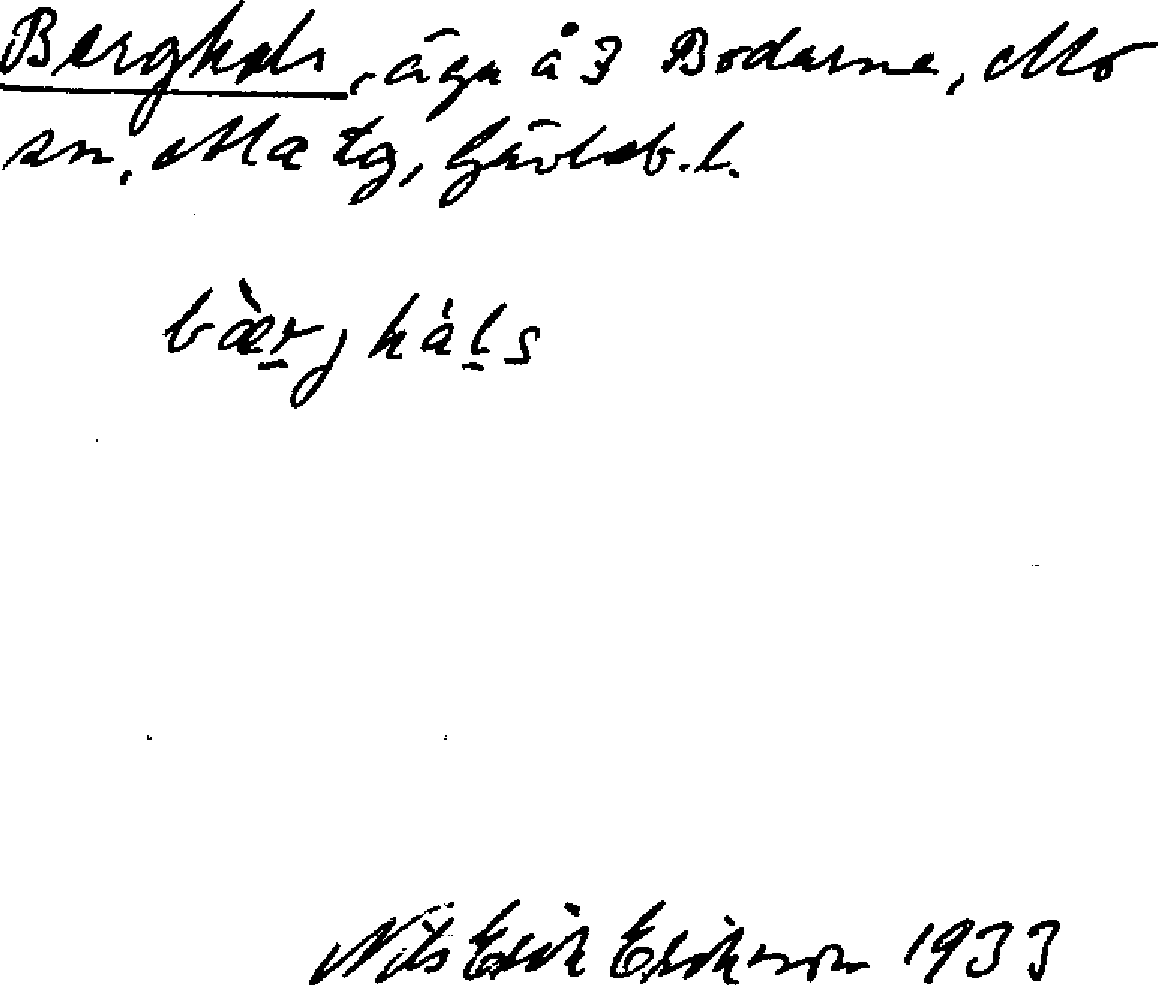 Berghals, äga å 3 Bodarne, Mo
sn, Ma tg, Gävleb. l.
bæ̀rjháls
Nils Erik Erikson 1933